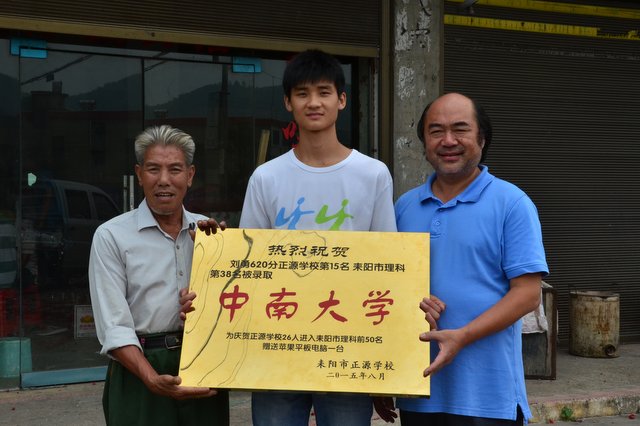 热烈祝贺
刘勇620分正源学校第15名 耒阳市理科
第38名被录取
中南大学
为庆贺正源学校26人进入耒阳市理科前50名
赠送苹果平板电脑一台
耒阳市正源学校
二〇一五年八月